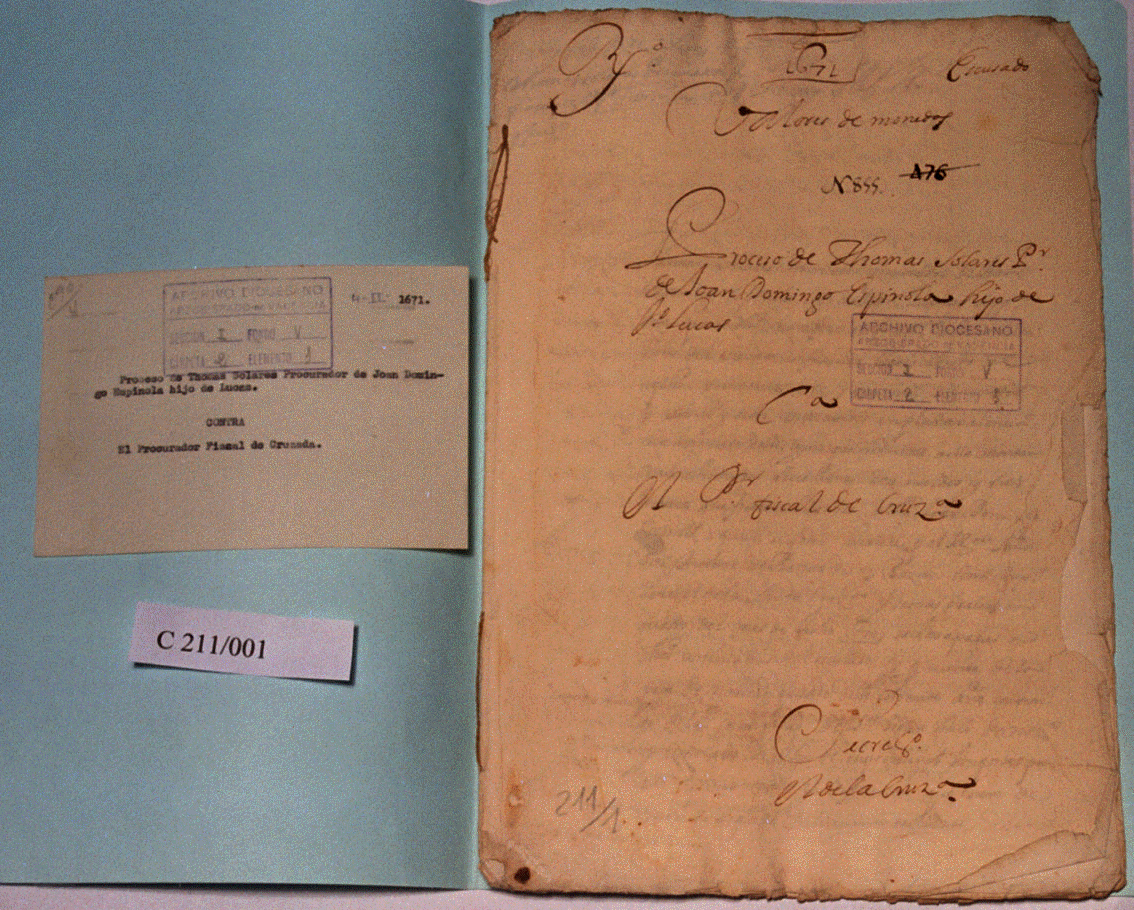 ARCHIVO DIOCESANO
ARZOBISPADO DE VALENCIA
SECCION I FONDO V
CARPETA 2 ELEMENTO 1
4-II- 1671.
Proceso de Thomas Solares Procurador de Joan Domin-
go Espinola hijo de Lucas.
CONTRA
El Procurador Fiscal de Cruzada.
C 211/001
1671
Escusado
Valores de monedas
N 855. 476
Proceso de Thomas Solares Pr
de Joan Domingo Espinola hijo de
Lucas
ARCHIVO DIOCESANO
ARZOBISPADO DE VALENCIA
SECCION I FONDO V
CARPETA 2 ELEMENTO 1
Ca
Pr fiscal de Cruza
Secreto
de la Cruza
211/1